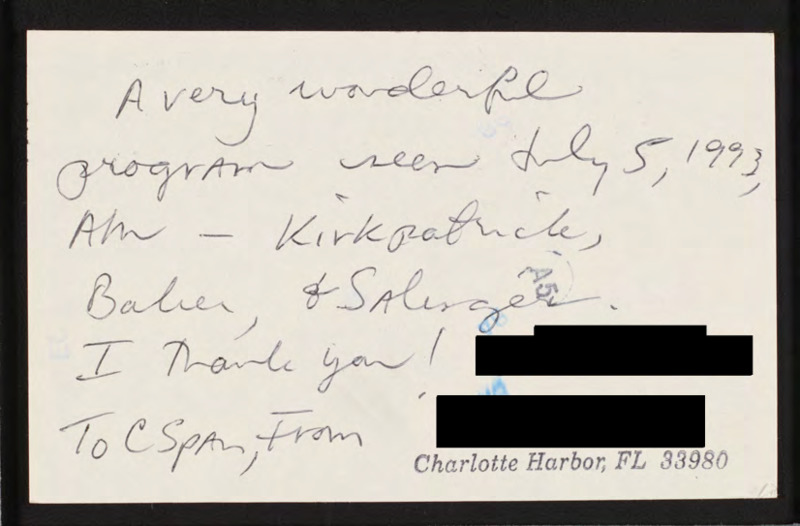 A very wonderful
program seen July 5, 1993,
AM — Kirkpatrick,
Baker, & Salinger.
I Thank you!
To C SPAN, From
Charlotte Harbor, FL 33980